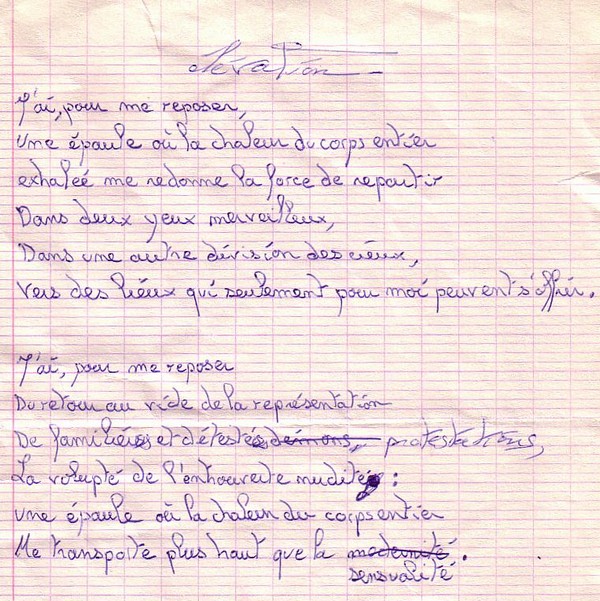 élévation
J'ai, pour me reposer,
Une épaule où la chaleur du corps entier
exhalée me redonne la force de repartir
Dans deux yeux merveilleux,
Dans une autre division des cieux,
Vers des lieux qui seulement pour moi peuvent s'offrir.
J'ai, pour me reposer
Du retour au vide de la représentation
De familiers et détestés démons, protestations,
La volupté de l'entrouverte nudité :
une épaule où la chaleur du corps entier
Me transporte plus haut que la modernité.
sensualité